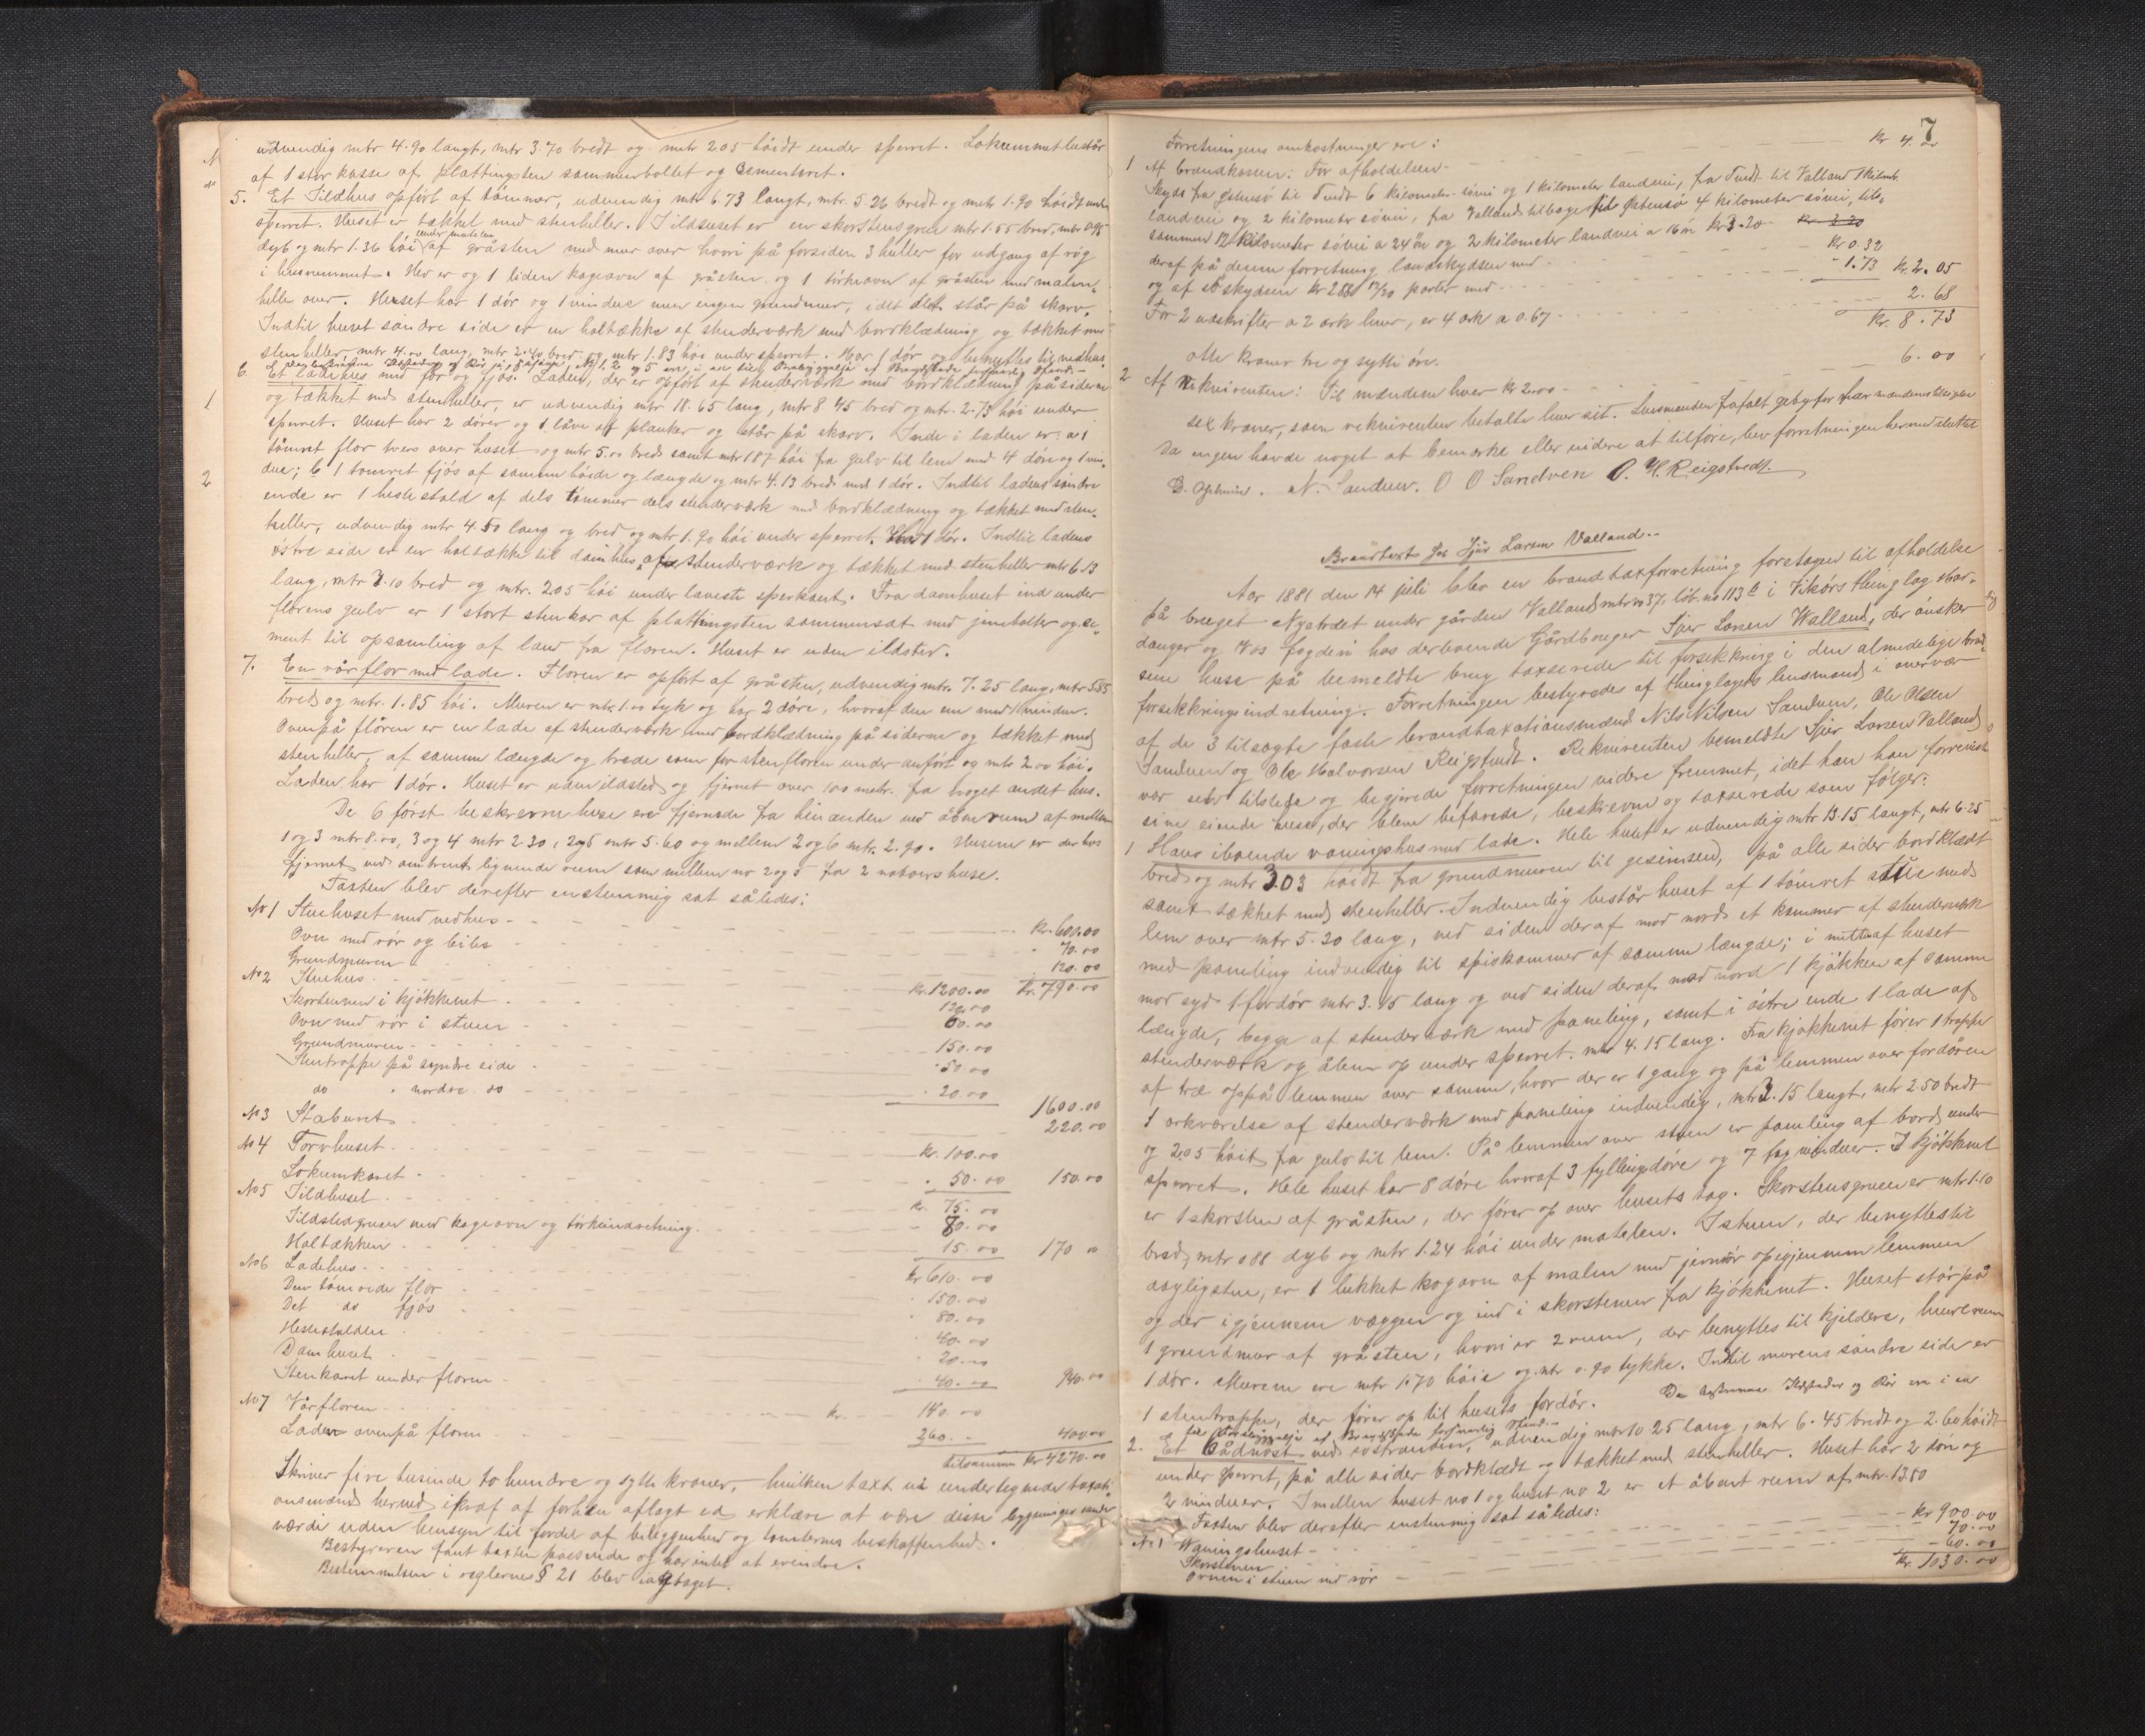 udvendig mtr 4.90 langt, mtr 3.70 bredt og mtr 2.05 høidt under sperret. Lokummet består
af 1 stor kasse af plattingsten sammenboltet og Cementeret.
5. Et Ildhus opført af tømmer, udvendig mtr 6.73 langt, mtr. 5.26 bredt og mtr 1.90 høidt under
sperret. Huset er tækket med stenheller. I ildhuset er en skorstensgrue mtr 1.55 bred, mtr 0.95
dyb og mtr 1.36 høi under mantelen af gråsten med mur over hvori på forsiden 3 huller for udgang af røg
i husrummet. Her er og 1 liden bageovn af gråsten og 1 tørkeovn af gråsten med malm-
helle over. Huset har 1 dør og 1 vindue men ingen grundmur, idet det står på skarv.
Indtil huset søndre side er en haltække af stenderværk med bordklædning og tækket med
stenheller, mtr 4.00 lang, mtr 2.40 bred og mtr 1.83 høi under sperret. Har 1 dør og benyttes til vedhus.
6. Et ladehus med flor og fjøs. Laden, der er opført af stenderværk med bordklædning på siderne
og tækket med stenheller, er udvendig mtr 18.65 lang, mtr 8.45 bred og mtr. 2.75 høi under
sperret. Huset har 2 dører og 1 låve af planker og står på skarv. Inde i laden er: a 1
tømret flor tvers over huset og mtr 5.00 bred samt mtr 1.87 høi fra gulv til lem med 4 døre og 1 vin-
due; b 1 tømret fjøs af samme høide og længde og mtr 4.13 bred med 1 dør. Indtil ladens søndre
ende er 1 hestestald af dels tømmer dels stenderværk med bordklædning og tækket med sten-
heller, udvendig mtr 4.50 lang og bred og mtr 1.90 høi under sperret. Har 1 dør. Indtil ladens
østre side er en haltække til damhus, af stenderværk og tækket med stenheller mtr 6.13
lang, mtr 3.10 bred og mtr. 2.05 høi under laveste sperkant. Fra damhuset ind under
florens gulv er 1 stort stenkar af plattingsten sammensat med jernbolter og se-
ment til opsamling af land fra floren. Huset er uden ildsted.
7. En vårflor med lade. Floren er opført af gråsten, udvendig mtr. 7.25 lang, mtr 5.85
bred og mtr. 1.85 høi. Muren er mtr 1.00 tyk og har 2 døre, hvoraf den ene med 1 vindu.
Ovenpå floren er en lade af stenderværk med bordklædning på siderne og tækket med
stenheller, af samme længde og brede som for stenfloren under anført og mtr 2.00 høi.
Laden har 1 dør. Huset er uden ildsted og fjernet over 100 metr. fra noget andet hus.
De 6 først beskrevne huse ere fjernede fra hinanden ved åben rum af mellem
1 og 3 mtr 8.00, 3 og 4 mtr 2.30, 2 og 5 mtr 5.60 og mellem 2 og 6 mtr. 2.90. Husene er derhos
fjernet ved omtrent lignende rum som mellem no 2 og 5 fra 2 naboershuse.
Taxten blev derefter enstemmig sat således:
No 1 Stuehuset med vedhus - Kr. 600.00
Ovn med rør og beiler - 70.00
Grundmuren - 120.00
Kr. 790.00
No 2 Stuehus - Kr. 1200.00
Skorstenen i kjøkkenet - 120.00
Ovn med rør i stuen - 60.00
Grundmuren - 150.00
Stentrappe på søndre side - 50.00
do " nordre do - 20.00
1600.00
No 3 Staburet - 220.00
No 4 Torvhuset - Kr. 100.00
Lokumkaret - 50.00 150.00
No 5 Ildhuset - Kr. 75.00
Ildstedgruen med bageovn og tørkeindretning - 80.00
Haltækken - 15.00 170.00
No 6 Ladehus - Kr 610.00
Den tømrede flor - 150.00
Det do fjøs - 80.00
Hestestalden - 40.00
Damhuset - 20.00
Stenkaret under floren - 40.00 940.00
No 7 Vårfloren - Kr. 140.00
Laden ovenpå floren - 260. - 400.00
tilsammen Kr 4270.00
Skriver fire tusinde to hundre og sytti kroner, hvilken taxt vi undertegnede taxati-
onsmænd herved i kraf af forhen aflagt ed erklære at være disse bygningers sande
værdi uden hensyn til fordel af beliggenhed og tomternes beskaffenhed.
Bestyreren fant taxten passende og har intet at erindre.
Bestemmelsen i reglernes § 21 blev iagttaget.
7
Forretningens omkostninger ere:
1 Af brandkassen: For afholdelsen - Kr 4.00
Skyds fra Østensø til Tvedt 6 kilometer søvei og 1 kilometer landvei, fra Tvedt til Valland 1 kilmtr.
landvei og 2 kilometer søvei, fra Valland tilbage til Østensø 4 kilometer søvei, til-
sammen 12 kilometer søvei a 24 øre og 2 kilometer landvei a 16 øre Kr 3.20
deraf på denne forretning landskydsen med - Kr 0.32
og af søskydsen Kr 2.88 parter med - 1.73 Kr. 2.05
For 2 udskrifter a 2 ark hver, er 4 ark a 0.67 - 2.68
Kr. 8.73
otte kroner tre og sytti øre.
2 Af Rekvirenten: Til mændene hver Kr 2.00 - 6.00
sex kroner, som rekvirenten betalte hver sit. Lensmanden frafalt gebyr for mændenes tilsigelse
Da ingen havde noget at bemærke eller videre at tilføre, blev forretningen hermed sluttet
N. Sandven. O O Sandven O. H. Reigstvedt.
Brandtaxt hos Sjur Larsen Valland.
Aar 1881 den 14 juli blev en brandtaxtforretning foretagen til afholdelse
på bruget Nystødet under gården Valland mtr no 37, løb. no 113 b i Vikørs thinglag Har-
danger og Vos fogderi hos derboende Gårdbruger Sjur Larsen Valland, der ønsker
sine huse på bemeldte brug taxserede til forsikkring i den almindelige brand-
forsikkrings indretning. Forretningen bestyredes af thinglagets lensmand i overvær
af de 3 tilsagte faste brandtaxationsmænd Nils Nilsen Sandven, Ole Olsen
Sandven og Ole Halvorsen Reigstvedt. Rekvirenten bemeldte Sjur Larsen Valland
var selv tilstede og begjærede forretningen videre fremmet, idet han foreviste
sine eiende huse, der bleve befarede, beskrevne og taxserede som følger:
1 Hans iboende vaaningshus med lade. Hele huset er udvendig mtr 13.15 langt, mtr 6.25
bred og mtr 3.03 høidt fra grundmuren til gesimsen, på alle sider bordklædt
samt tækket med stenheller. Indvendig består huset af 1 tømret stue med
lem over mtr 5.20 lang, ved siden deraf mod nord et kammer af stenderværk
med paneling indvendig til spiskammer af samme længde; i midten af huset
mod syd 1 fordør mtr 3.15 lang og ved siden deraf mod nord 1 kjøkken af samme
længde, begge af stenderværk med paneling, samt i østre ende 1 lade af
stenderværk og åben op under sperret, mtr 4.15 lang. Fra kjøkkenet fører 1 trappe
af træ oppå lemmen over samme, hvor der er 1 gang og på lemmen over fordøren
1 arkværelse af stenderværk med paneling indvendig, mtr 3.15 langt, mtr 2.50 bredt
og 2.05 høit fra gulv til lem. På lemmen over stuen er paneling af bord under
sperret. Hele huset har 8 døre hvoraf 3 fyllingdøre og 7 fag vinduer. I kjøkkenet
er 1 skorsten af gråsten, der fører op over husets tag. Skorstensgruen er mtr 1.10
bred, mtr 0.88 dyb og mtr 1.24 høi under mantelen. I stuen, der benyttes til
dagligstue, er 1 lukket kogovn af malm med jernrør op igjennem lemmen
og der igjennem væggen og ind i skorstenen fra kjøkkenet. Huset står på
1 grundmur af gråsten, hvori er 2 rum, der benyttes til kjeldere, hvert rum
1 dør. Murene ere mtr 1.70 høie og mtr 0.90 tykke. Indtil murens søndre side er
1 stentrappe, der fører op til husets fordør. De beskrevne Ildsteder og Rør ere i en
til Forebyggelse af Brandskade forsvarlig Stand.
2. Et Bådnøst ved søstranden, udvendig mtr 10.25 lang, mtr 6.45 bredt og 2.60 høidt
under sperret, på alle sider bordklædt og tækket med stenheller. Huset har 2 døre og
2 vinduer. Imellem huset no 1 og huset no 2 er et åbent rum af mtr. 13.50
Taxten blev derefter enstemmig sat således:
No 1 Waningshuset - Kr 900.00
Skorstenen - 70.00
Ovnen i stuen med rør - 60.00
Kr. 1030.00